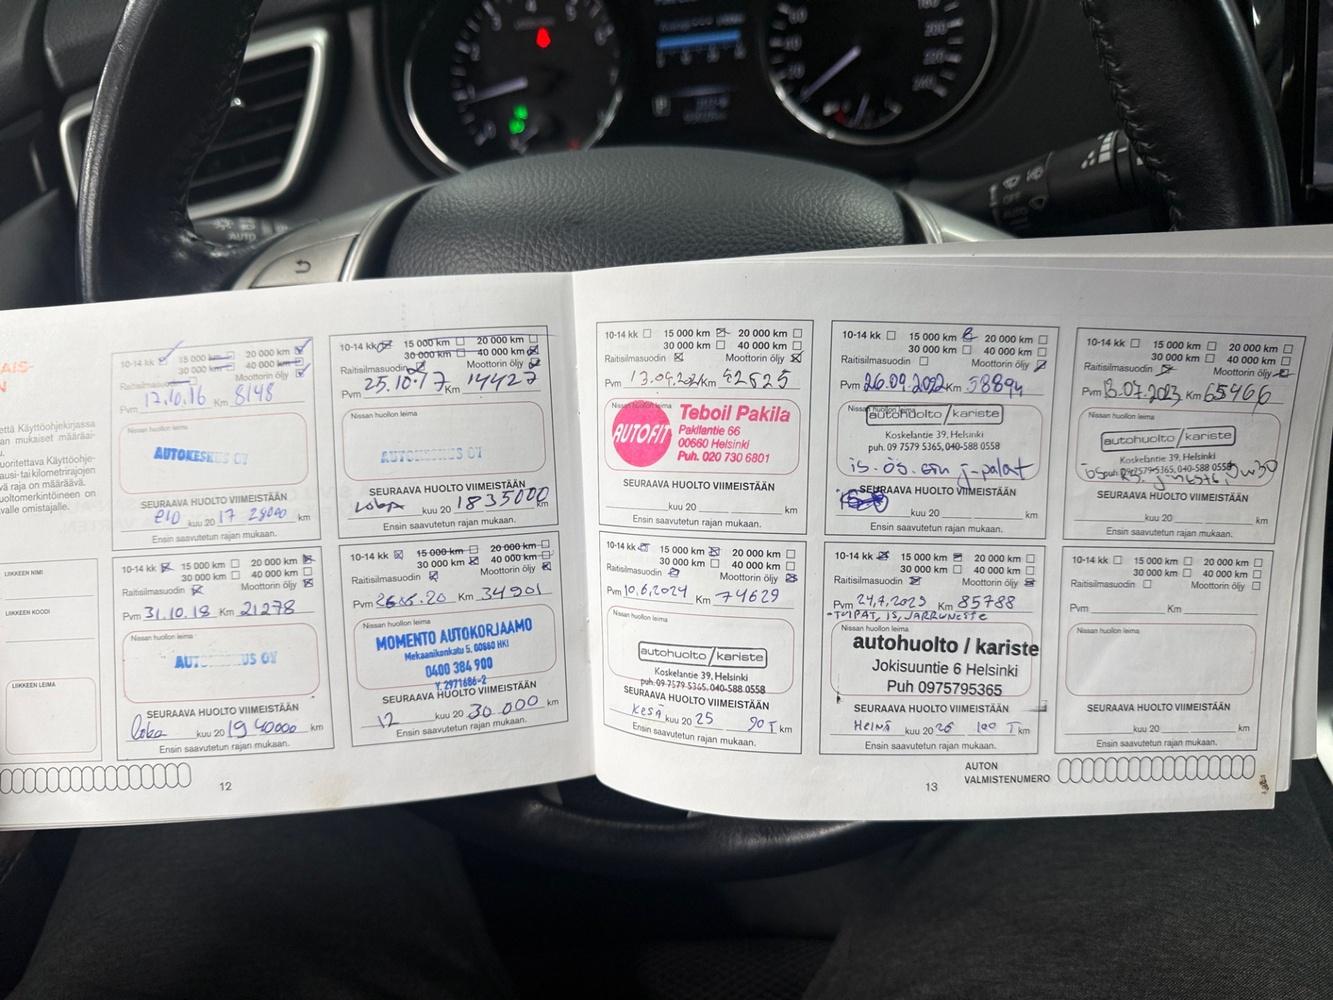 10-14 kk 15 000 km 20 000 km
30 000 km 40 000 km
Raitisilmasuodin Moottorin öljy
Pvm 12.10.16 Km 8148
Nissan huollon leima
AUTOKESKUS OY
SEURAAVA HUOLTO VIIMEISTÄÄN
kuu 20 17 km
Ensin saavutetun rajan mukaan.
10-14 kk 15 000 km 20 000 km
30 000 km 40 000 km
Raitisilmasuodin Moottorin öljy
Pvm 25.10.17 Km 14427
Nissan huollon leima
AUTOKESKUS OY
SEURAAVA HUOLTO VIIMEISTÄÄN
loka kuu 20 18 35000 km
Ensin saavutetun rajan mukaan.
10-14 kk 15 000 km 20 000 km
30 000 km 40 000 km
Raitisilmasuodin Moottorin öljy
Pvm 31.10.18 Km 21278
Nissan huollon leima
AUTOKESKUS OY
SEURAAVA HUOLTO VIIMEISTÄÄN
loka kuu 20 19 40000 km
Ensin saavutetun rajan mukaan.
10-14 kk 15 000 km 20 000 km
30 000 km 40 000 km
Raitisilmasuodin Moottorin öljy
Pvm Km 34901
Nissan huollon leima
MOMENTO AUTOKORJAAMO
Mekaanikonkatu 5, 00880 HKI
0400 384 900
Y. 2971686-2
SEURAAVA HUOLTO VIIMEISTÄÄN
12 kuu 20 30 000 km
Ensin saavutetun rajan mukaan.
LIIKKEEN NIMI
LIIKKEEN KOODI
LIIKKEEN LEIMA
12
10-14 kk 15 000 km 20 000 km
30 000 km 40 000 km
Raitisilmasuodin Moottorin öljy
Pvm Km
Nissan huollon leima
AUTOFIT
Teboil Pakila
Pakilantie 66
00660 Helsinki
Puh. 020 730 6801
SEURAAVA HUOLTO VIIMEISTÄÄN
kuu 20 km
Ensin saavutetun rajan mukaan.
10-14 kk 15 000 km 20 000 km
30 000 km 40 000 km
Raitisilmasuodin Moottorin öljy
Pvm 26.09.2022 Km 58894
Nissan huollon leima
autohuolto / kariste
Koskelantie 39, Helsinki
puh. 09 7579 5365, 040-588 0558
j-palat
SEURAAVA HUOLTO VIIMEISTÄÄN
kuu 20 km
Ensin saavutetun rajan mukaan.
10-14 kk 15 000 km 20 000 km
30 000 km 40 000 km
Raitisilmasuodin Moottorin öljy
Pvm 13.07.2023 Km 65466
Nissan huollon leima
autohuolto / kariste
Koskelantie 39, Helsinki
SEURAAVA HUOLTO VIIMEISTÄÄN
kuu 20 km
Ensin saavutetun rajan mukaan.
10-14 kk 15 000 km 20 000 km
30 000 km 40 000 km
Raitisilmasuodin Moottorin öljy
Pvm 10.6.2024 Km 74629
Nissan huollon leima
autohuolto / kariste
Koskelantie 39, Helsinki
puh. 09 7579 5365, 040-588 0558
SEURAAVA HUOLTO VIIMEISTÄÄN
KESÄ kuu 20 25 90 T km
Ensin saavutetun rajan mukaan.
10-14 kk 15 000 km 20 000 km
30 000 km 40 000 km
Raitisilmasuodin Moottorin öljy
Pvm 24.7.2025 Km 85788
IS, JARRUNESTE
Nissan huollon leima
autohuolto / kariste
Jokisuuntie 6 Helsinki
Puh 0975795365
SEURAAVA HUOLTO VIIMEISTÄÄN
HEINÄ kuu 20 26 100 T km
Ensin saavutetun rajan mukaan.
10-14 kk 15 000 km 20 000 km
30 000 km 40 000 km
Raitisilmasuodin Moottorin öljy
Pvm Km
Nissan huollon leima
SEURAAVA HUOLTO VIIMEISTÄÄN
kuu 20 km
Ensin saavutetun rajan mukaan.
13
AUTON
VALMISTENUMERO